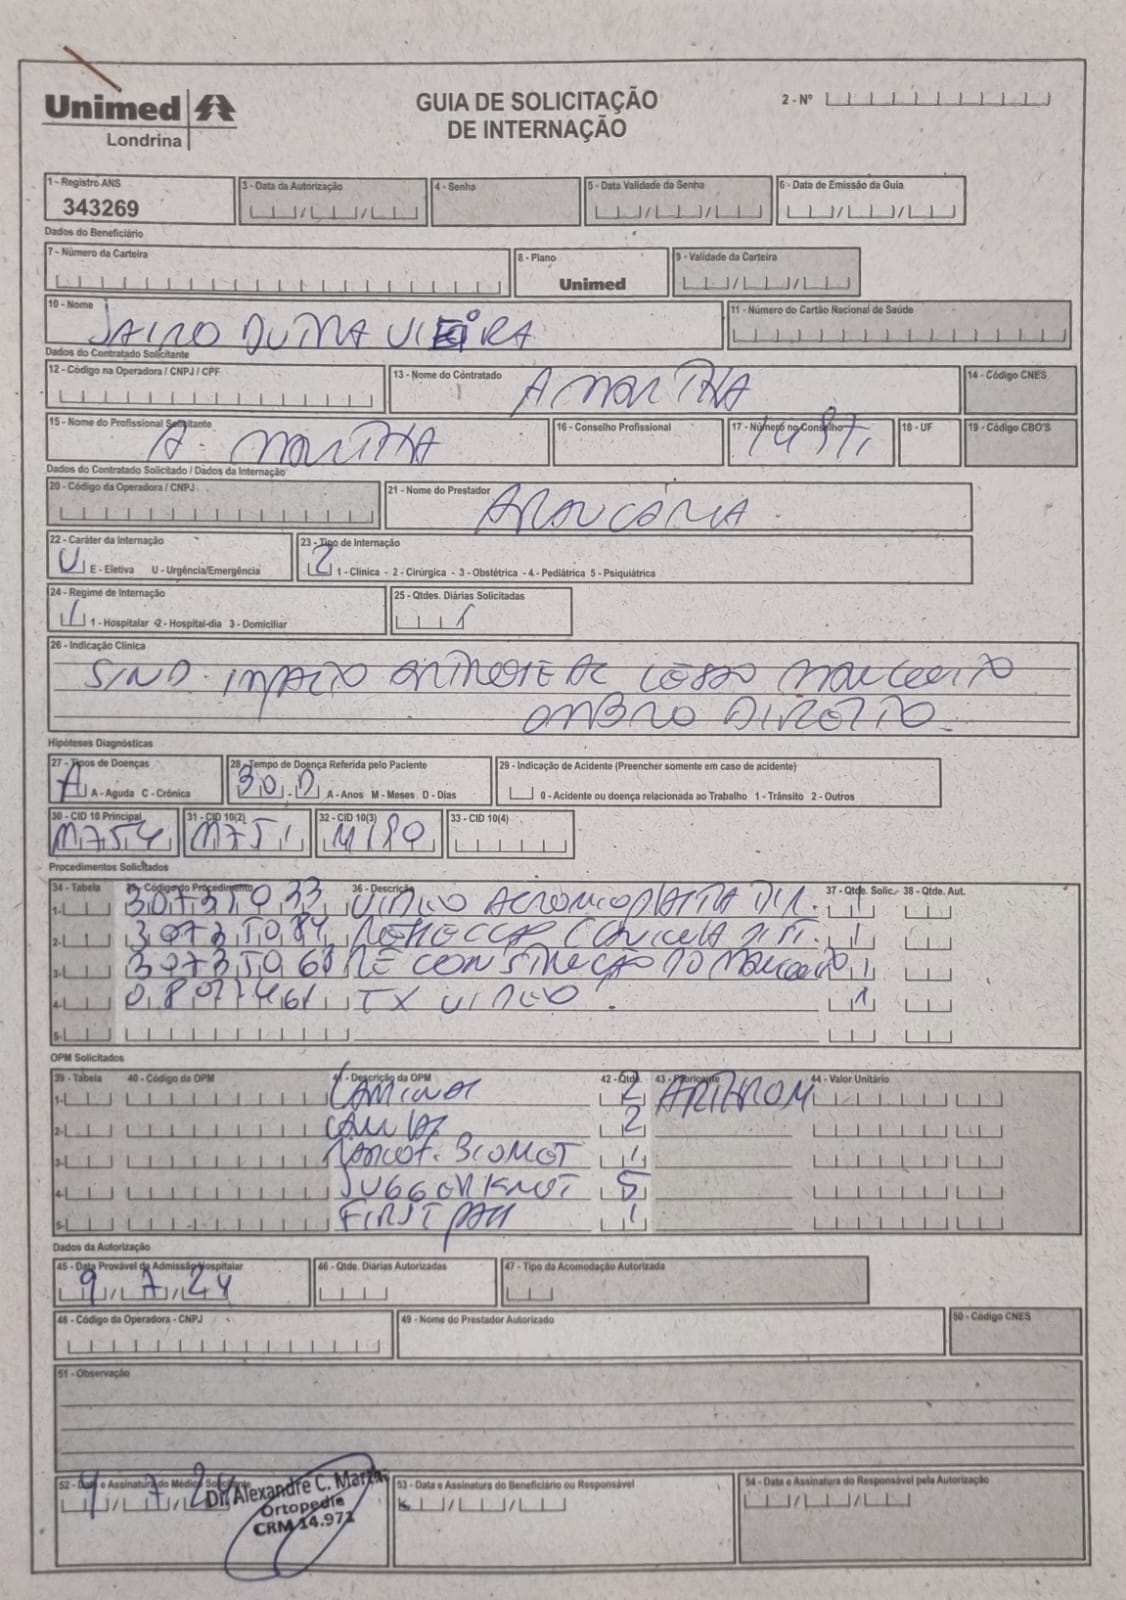 Unimed
Londrina
GUIA DE SOLICITAÇÃO
DE INTERNAÇÃO
2 - Nº
1 - Registro ANS
343269
3 - Data da Autorização
4 - Senha
5 - Data Validade da Senha
6 - Data de Emissão da Guia
Dados do Beneficiário
7 - Número da Carteira
8 - Plano
Unimed
9 - Validade da Carteira
10 - Nome
JAIRO DUTRA VIEIRA
11 - Número do Cartão Nacional de Saúde
Dados do Contratado Solicitante
12 - Código na Operadora / CNPJ / CPF
13 - Nome do Contratado
A MARTHA
14 - Código CNES
15 - Nome do Profissional Solicitante
A. MARTHA
16 - Conselho Profissional
17 - Número no Conselho
14971
18 - UF
19 - Código CBO'S
Dados do Contratado Solicitado / Dados da Internação
20 - Código da Operadora / CNPJ
21 - Nome do Prestador
ARAUCÁRIA
22 - Caráter da Internação
U E - Eletiva U - Urgência/Emergência
23 - Tipo de Internação
2 1 - Clínica - 2 - Cirúrgica - 3 - Obstétrica - 4 - Pediátrica 5 - Psiquiátrica
24 - Regime de Internação
1 1 - Hospitalar 2 - Hospital-dia 3 - Domiciliar
25 - Qtdes. Diárias Solicitadas
1
26 - Indicação Clínica
SIND. IMPACTO ARTROSE AC LESÃO MANGUITO
OMBRO DIREITO
Hipóteses Diagnósticas
27 - Tipos de Doenças
A A - Aguda C - Crônica
28 - Tempo de Doença Referida pelo Paciente
30 D A - Anos M - Meses D - Dias
29 - Indicação de Acidente (Preencher somente em caso de acidente)
0 - Acidente ou doença relacionada ao Trabalho 1 - Trânsito 2 - Outros
30 - CID 10 Principal
M754
31 - CID 10(2)
M751
32 - CID 10(3)
M190
33 - CID 10(4)
Procedimentos Solicitados
34 - Tabela
35 - Código do Procedimento
36 - Descrição
37 - Qtde. Solic.
38 - Qtde. Aut.
1- 30735033 VIDEO ACROMIOPLASTIA DIR. 1
2- 30735084 CLAVICULA 1
3- 30735068 RECONSTRUÇÃO DO MANGUITO 1
4- TX VIDEO. 1
5-
OPM Solicitados
39 - Tabela
40 - Código da OPM
41 - Descrição da OPM
42 - Qtde.
43 - Fabricante
44 - Valor Unitário
1- LAMINAS 2 ARTHROM
2- CANULAS 2
3- 1
4- JUGGERKNOT 5
5- FIRST PASS 1
Dados da Autorização
45 - Data Provável da Admissão Hospitalar
9/7/24
46 - Qtde. Diárias Autorizadas
47 - Tipo da Acomodação Autorizada
48 - Código da Operadora - CNPJ
49 - Nome do Prestador Autorizado
50 - Código CNES
51 - Observação
52 - Data e Assinatura do Médico Solicitante
Dr. Alexandre C. Martha
Ortopedia
CRM 14.971
53 - Data e Assinatura do Beneficiário ou Responsável
54 - Data e Assinatura do Responsável pela Autorização